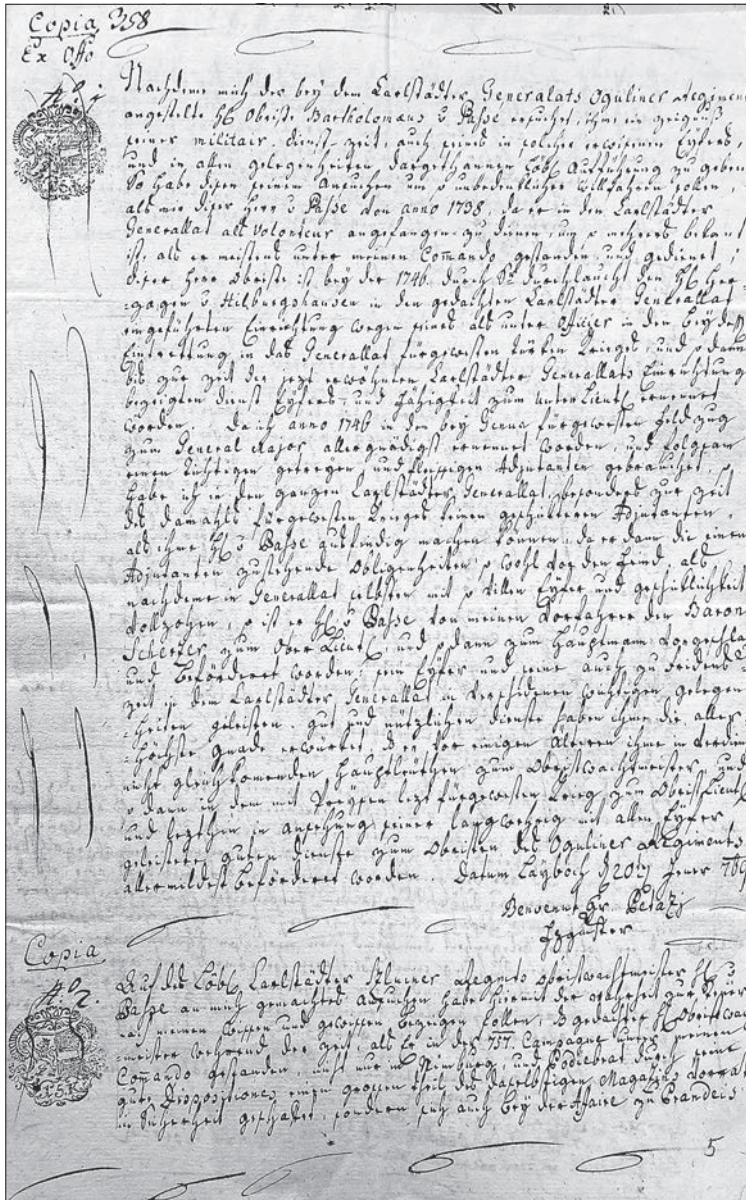 Copia 358
Ex Offo
No 1
Nachdeme mich der bey dem Carlstädter Generalats Oguliner Regiment
angestelte H: Obriste Bartholomæus v Passe ersuchet, ihme ein zeignuß
seiner militair. dienst-zeit, auch seines in solcher erwisenen Eyfers,
und in allen gelegenheiten dargethannen Löbl: Aufführung zu geben
So habe disen seinem Ansuchen um so unbedenklicher willfahren sollen,
als mir diser Herr v Passe von anno 1738, da er in den Carlstädter
Generallat als Volonteur angefangen zu dienen, um so mehrers bekant
ist, als er meistens unter meinen Comando gestanden, und gedienet;
diser Herr Obriste ist bey der 1746. durch Sr durchlaucht den H: Her-
-zogen v Hilburgshausen in den gedachten Carlstädter Generallat
eingeführten Einrichtung wegen seines als unter Officier in den bey dessen
Eintrettung in das Generallat fürgewesten Türken Krieges, und so dann
bis zur zeit der jezt erwöhnten Carlstädter Generallats Einrichtung
bezeigten dienst Eyfers, und Fähigkeit zum unter Lieut: ernennet
worden. Da ich anno 1746 in den bey Genua fürgewesten Feld zug
zum General Major allergnädigst ernennet worden, und folgsam
einen tüchtigen getreyen, und fleissigen Adjutanten gebrauchet, so
habe ich in den ganzen Carlstädter Generallat, besonders zur zeit
des damahls fürgewesten Krieges keinen geschikteren Adjutanten,
als ihme H: v Passe ausfindig machen können, da er dann die einem
Adjutanten zustehende Obligenheiten, so wohl vor den Feind, als
nachdeme in Generallat selbsten mit so villen Eyfer und geschiklichkeit
vollzohen, so ist er H: v Passe von meinen Vorfahrer den Baron
Scherzer zum Ober Lieut:, und so dann zum Hauptmann vorgeschla
und beförderet worden; sein Eyfer und seine auch zu fridens-
zeit in dem Carlstädter Generallat in verschidenen wichtigen gelegen-
-heiten geleisten gut und nützlichen dienste haben ihme die aller-
-höchste gnade erwürket, das er vor einigen älteren ihme in verdien
nicht gleichkomenden Hauptleüthen zum Obristwachtmeister, und
so dann in dem mit Preyssen lezt fürgewesten Krieg zum Obrist Lieut:
und lezthin in ansehung seiner langwehrig mit allen Eyfer
geleisteten guten dienste zum Obristen des Oguliner Regiments
allermildest beförderet worden. Datum Laybach d 20ten Jener 769
Benvenut Gr. Petazj
Copia
No 2.
Auf des Löbl: Carlstädter Szluiner Regmts Obristwachtmeister H: v
Passe an mich gemachtes Ansuchen habe hiermit der Wahrheit zur Steyer
nach meinen Wissen und gewissen bezeigen sollen, das gedachter H: Obristwach
-meister wehrend der zeit, als Er in der 757. Campagne unter meinen
Comando gestanden, nicht nur in Nimburg, und Podiebrat durch seine
gute Dispositiones einen grossen theil des daselbstigen Magazins vorrat
in Sicherheit geschaffet, sondern sich auch bey der Affaire zu Brandeis
5